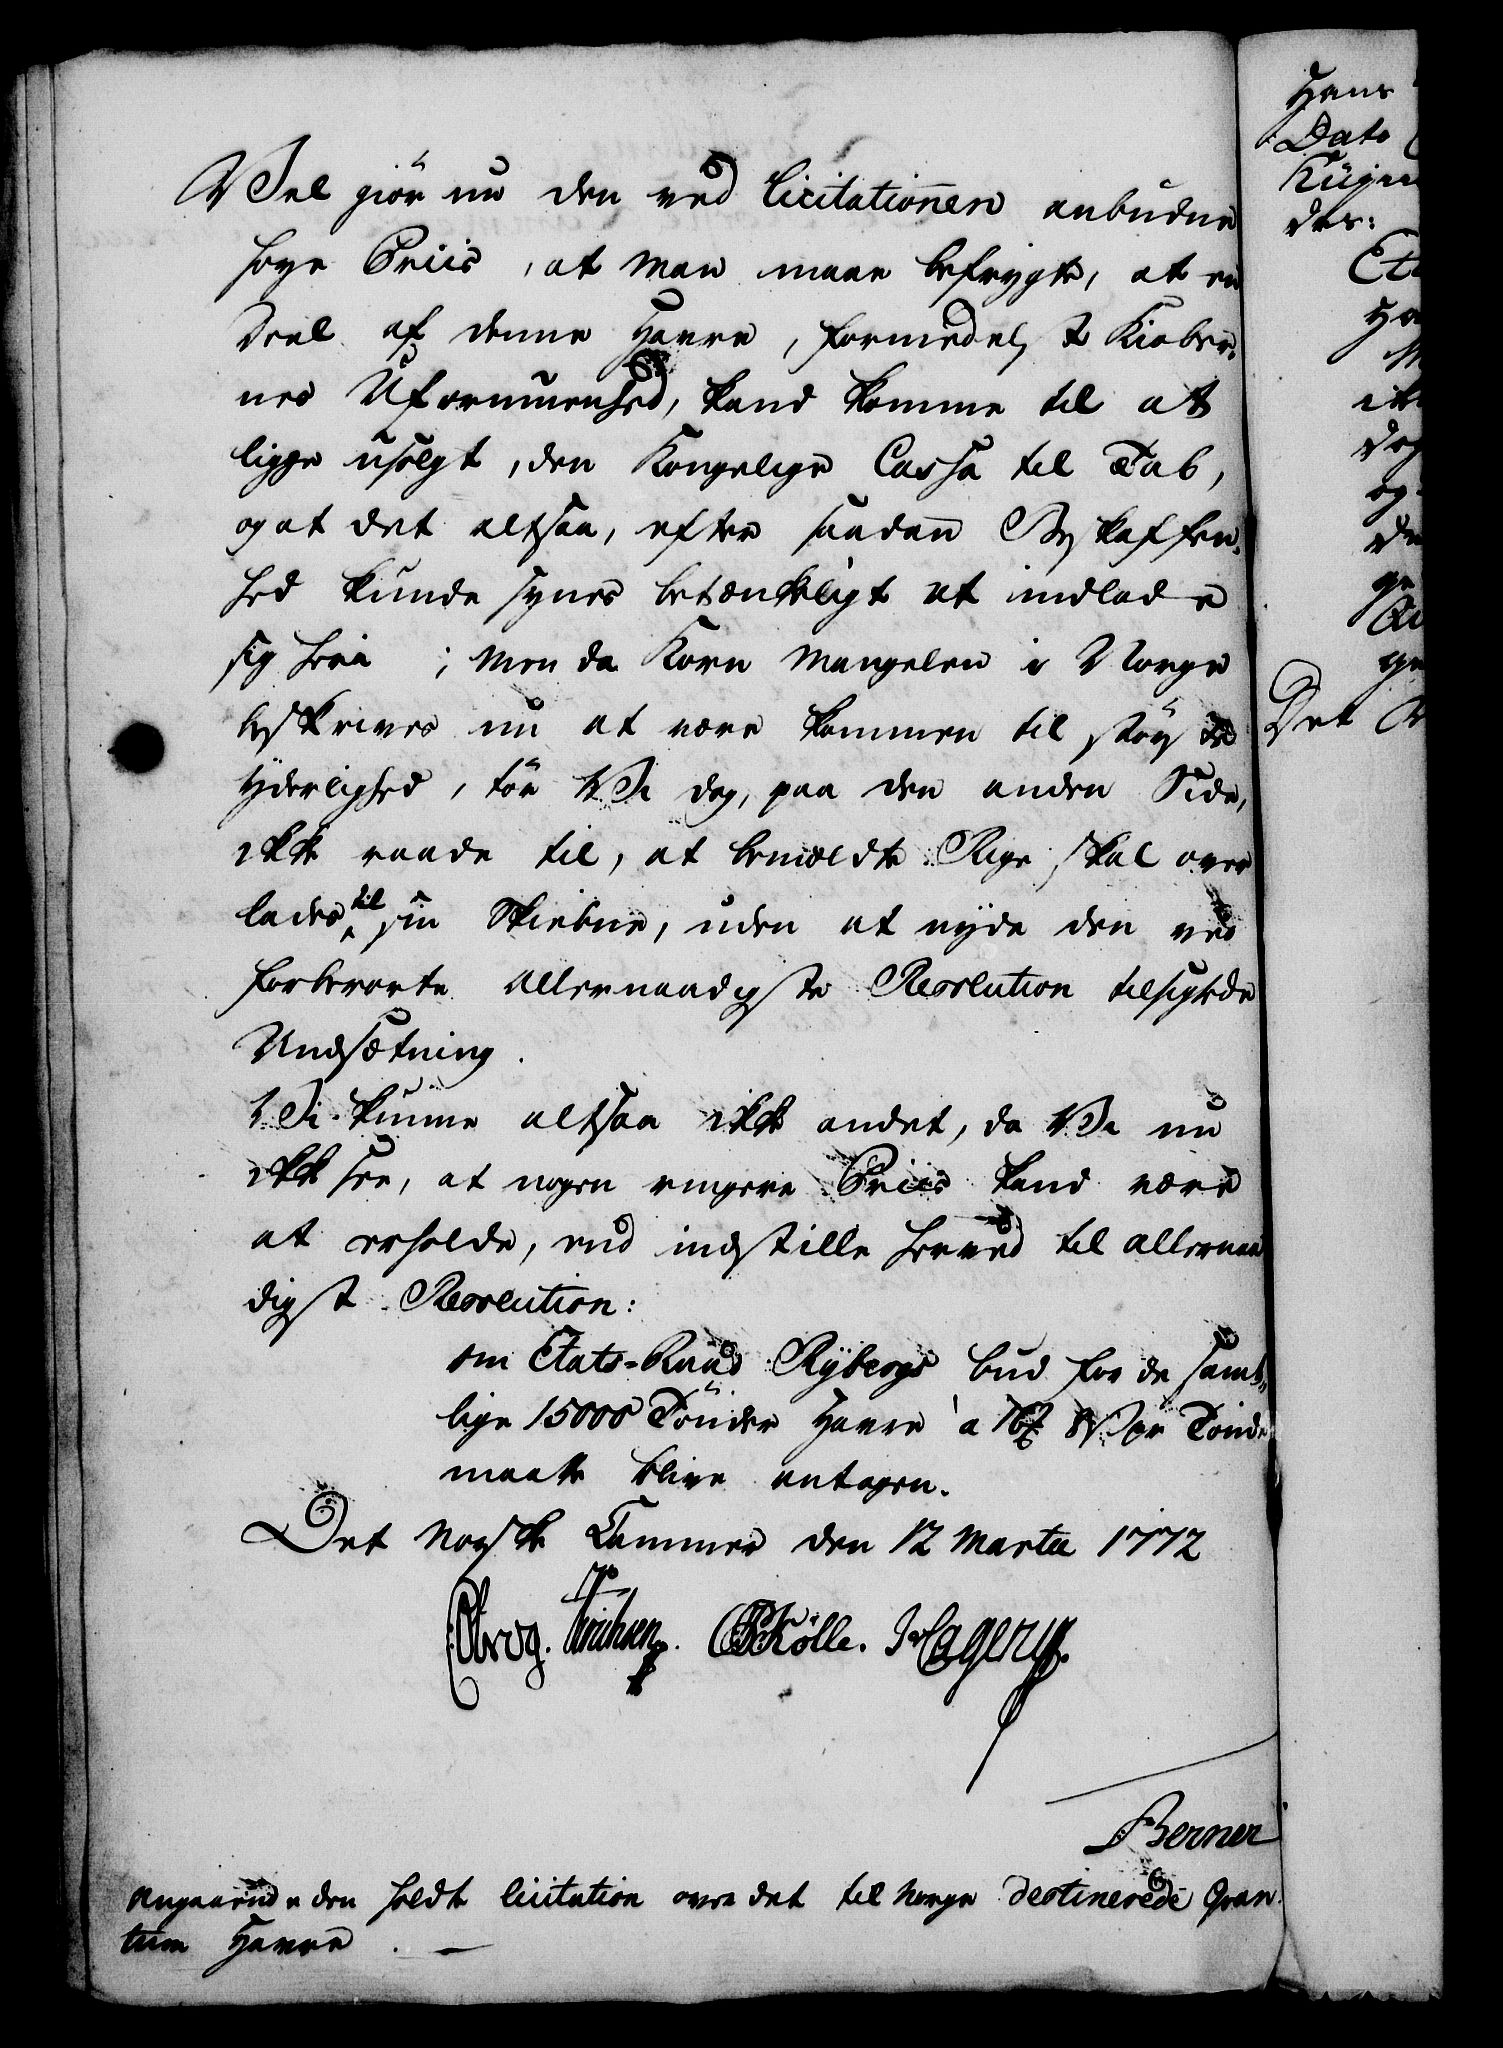 Vel giör nu den ved Licitationen anbudne
høye Priis, at man maae befrygte, at en
Deel af denne Havre, formedelst Kiøber-
nes Uformuenhed, kand komme til at
ligge usolgt, den Kongelige Cassa til Tab,
og at det altsaa, efter saadan Beskaffen-
hed kunde synes betænkeligt at indlade
sig heri; men da Korn Mangelen i Norge
beskrives nu at være kommen til støste
Yderlighed, tör Vi dog, paa den anden Side,
ikke raade til, at bemældte Rige skal over
lades til sin Skiebne, uden at nyde den ved
forberørte allernaadigste Resolution tilsigtede
Undsætning.
Vi kunne altsaa ikke andet, da Vi nu
ikke see, at nogen ringere Priis kand være
at erholde, end indstille herved til allernaa
digst Resolution:
om Etats-Raad Rÿbergs bud for de samt-
lige 15000 Tönder Havre a pr Tönde
maatte blive antagen.
Det Norske Cammer den 12 Martii 1772
Holle. Hagerup.
Berner
Angaaende den holdte licitation over det til Norge destinerede Qvan-
tum Havre. —
Hans
Dato
des:
Det